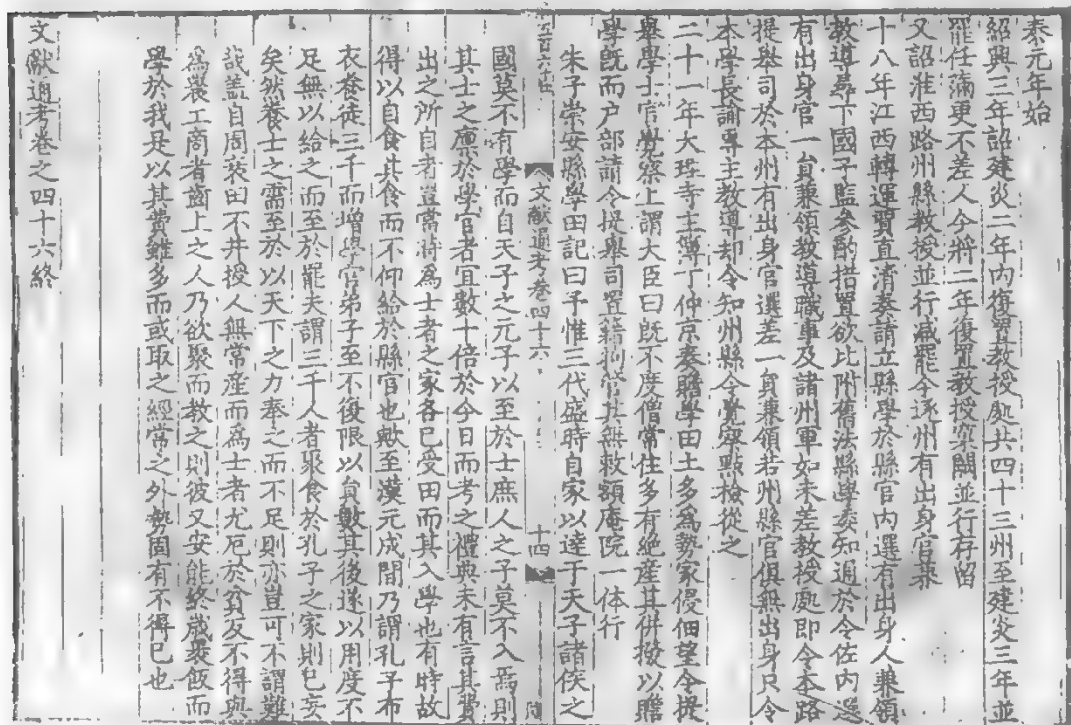 泰元年始
紹興三年詔建炎二年內復置教授處共四十三州至建炎三年並
罷任滿更不差人今將二年復置教授窠闕並行存留
又詔淮西路州縣教授並行减罷令逐州有出身官兼
十八年江西轉運賈直清奏請立縣學於縣官內選有出身人兼領
教導尋下國子監參酌措置欲比附舊法縣學委知通於令佐內選
有出身官一員兼領教導職事及諸州軍如未差教授處即令本路
提舉司於本州有出身官選差一員兼領若州縣官俱無出身只令
本學長諭專主教導却令知州縣令覺察點檢從之
二十一年大理寺主簿丁仲京奏贍學田土多為勢家侵佃望令提
舉學士官覺察上謂大臣曰既不度僧常住多有絕產其併撥以贍
學既而户部請令提舉司置籍拘管其無敕額庵院一体行
朱子崇安縣學田記曰予惟三代盛時自家以達于天子諸侯之
文献通考卷四十六
十四
國莫不有學而自天子之元子以至於士庶人之子莫不入焉則
其士之廪於學官者宜數十倍於今日而考之禮典未有言其費
出之所自者豈當時為士者之家各已受田而其入學也有時故
得以自食其食而不仰給於縣官也歟至漢元成間乃謂孔子布
衣養徒三千而增學官弟子至不復限以員數其後遂以用度不
足無以給之而至於罷夫謂三千人者聚食於孔子之家則已妄
矣然養士之需至於以天下之力奉之而不足則亦豈可不謂難
哉盖自周衰田不井授人無常產而為士者尤厄於貧反不得與
為農工商者齒上之人乃欲聚而教之則彼又安能終歲裹飯而
學於我是以其費雖多而或取之經常之外勢固有不得已也
文獻通考卷之四十六終